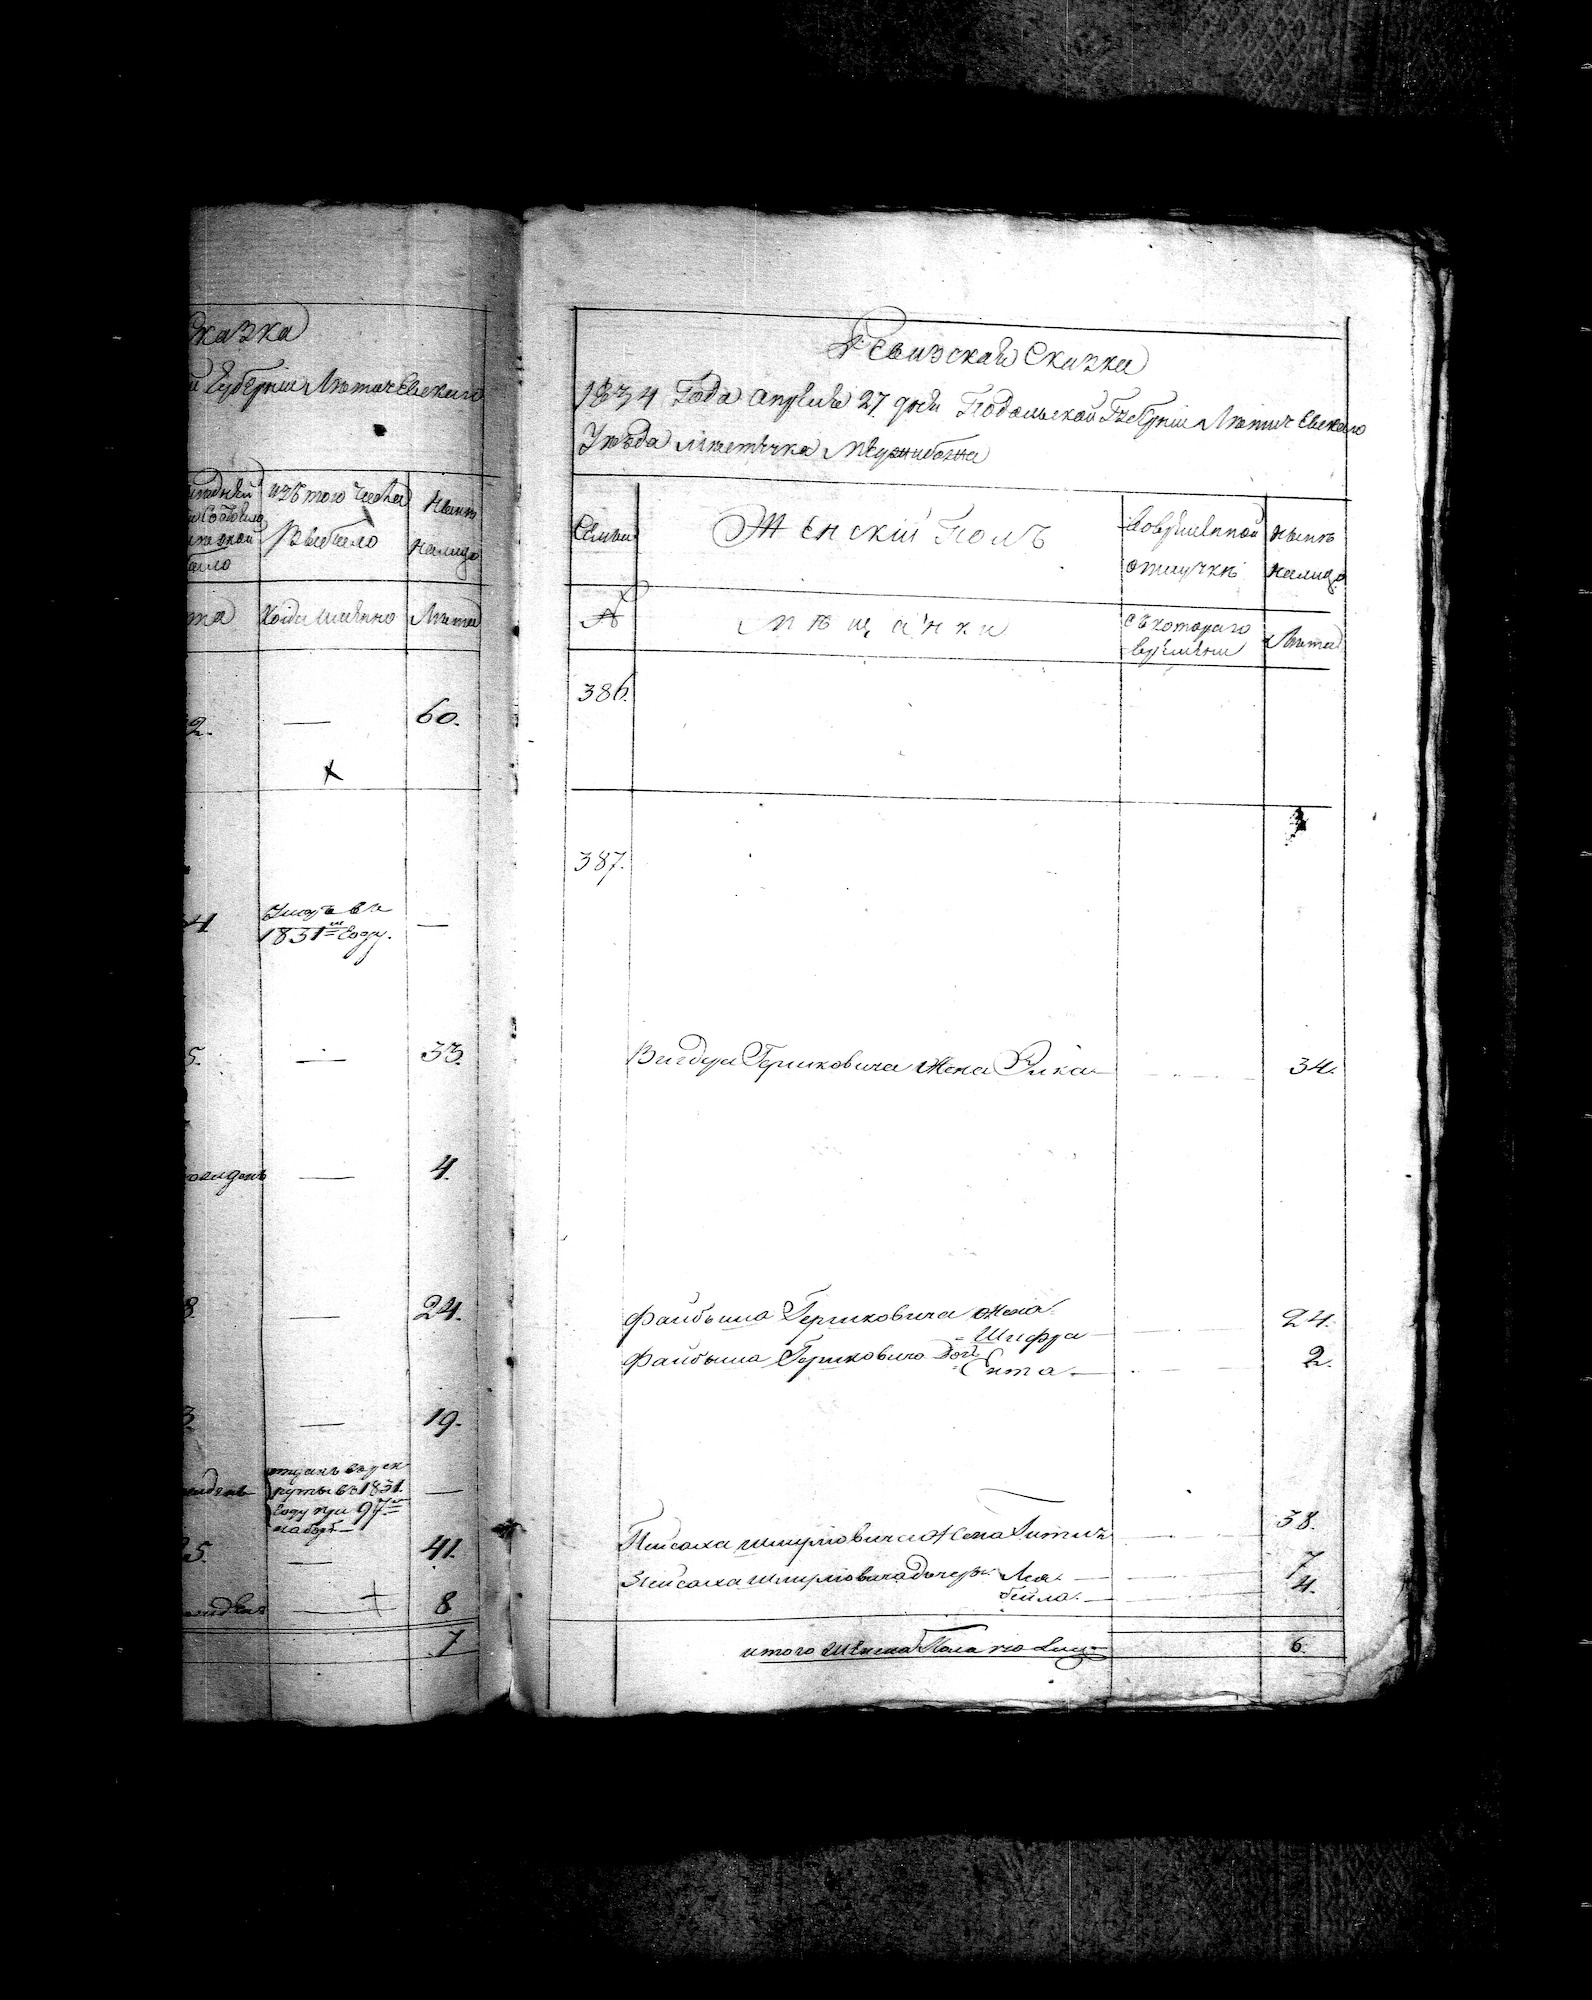 казка
й Губерніи Летичевскаго
изъ того числа
Ныне
выбыло
налицо
Когда имянно
Лета
2.
—
60.
4
Умръ въ
1831м году.
—
5.
—
33.
—
4.
8.
—
24.
3
—
19.
отданъ въ рек
руты въ 1831
году при 97м
наборе
—
25
—
41.
—
8
7
Ревизская Сказка
1834 Года апреля 27 дня Подольской Губерніи Летичевскаго
Уезда местечка Меджибожа
Семьи
Женскій Полъ
Вовремянной
отлучке
ныне
налицо
№
Мещанки
съ котораго
времяни
Лета
386.
387.
Вигдера Гершковича жена Рика
34.
Файбыша Гершковича жена
Шифра
24.
Файбыша Гершковича доч
Ента
2.
Пейсаха Шмулiовича жена
38.
Пейсаха Шмулiовича дочери Лея
7
бейла
4.
итого Женска Пола на Лицо
6.